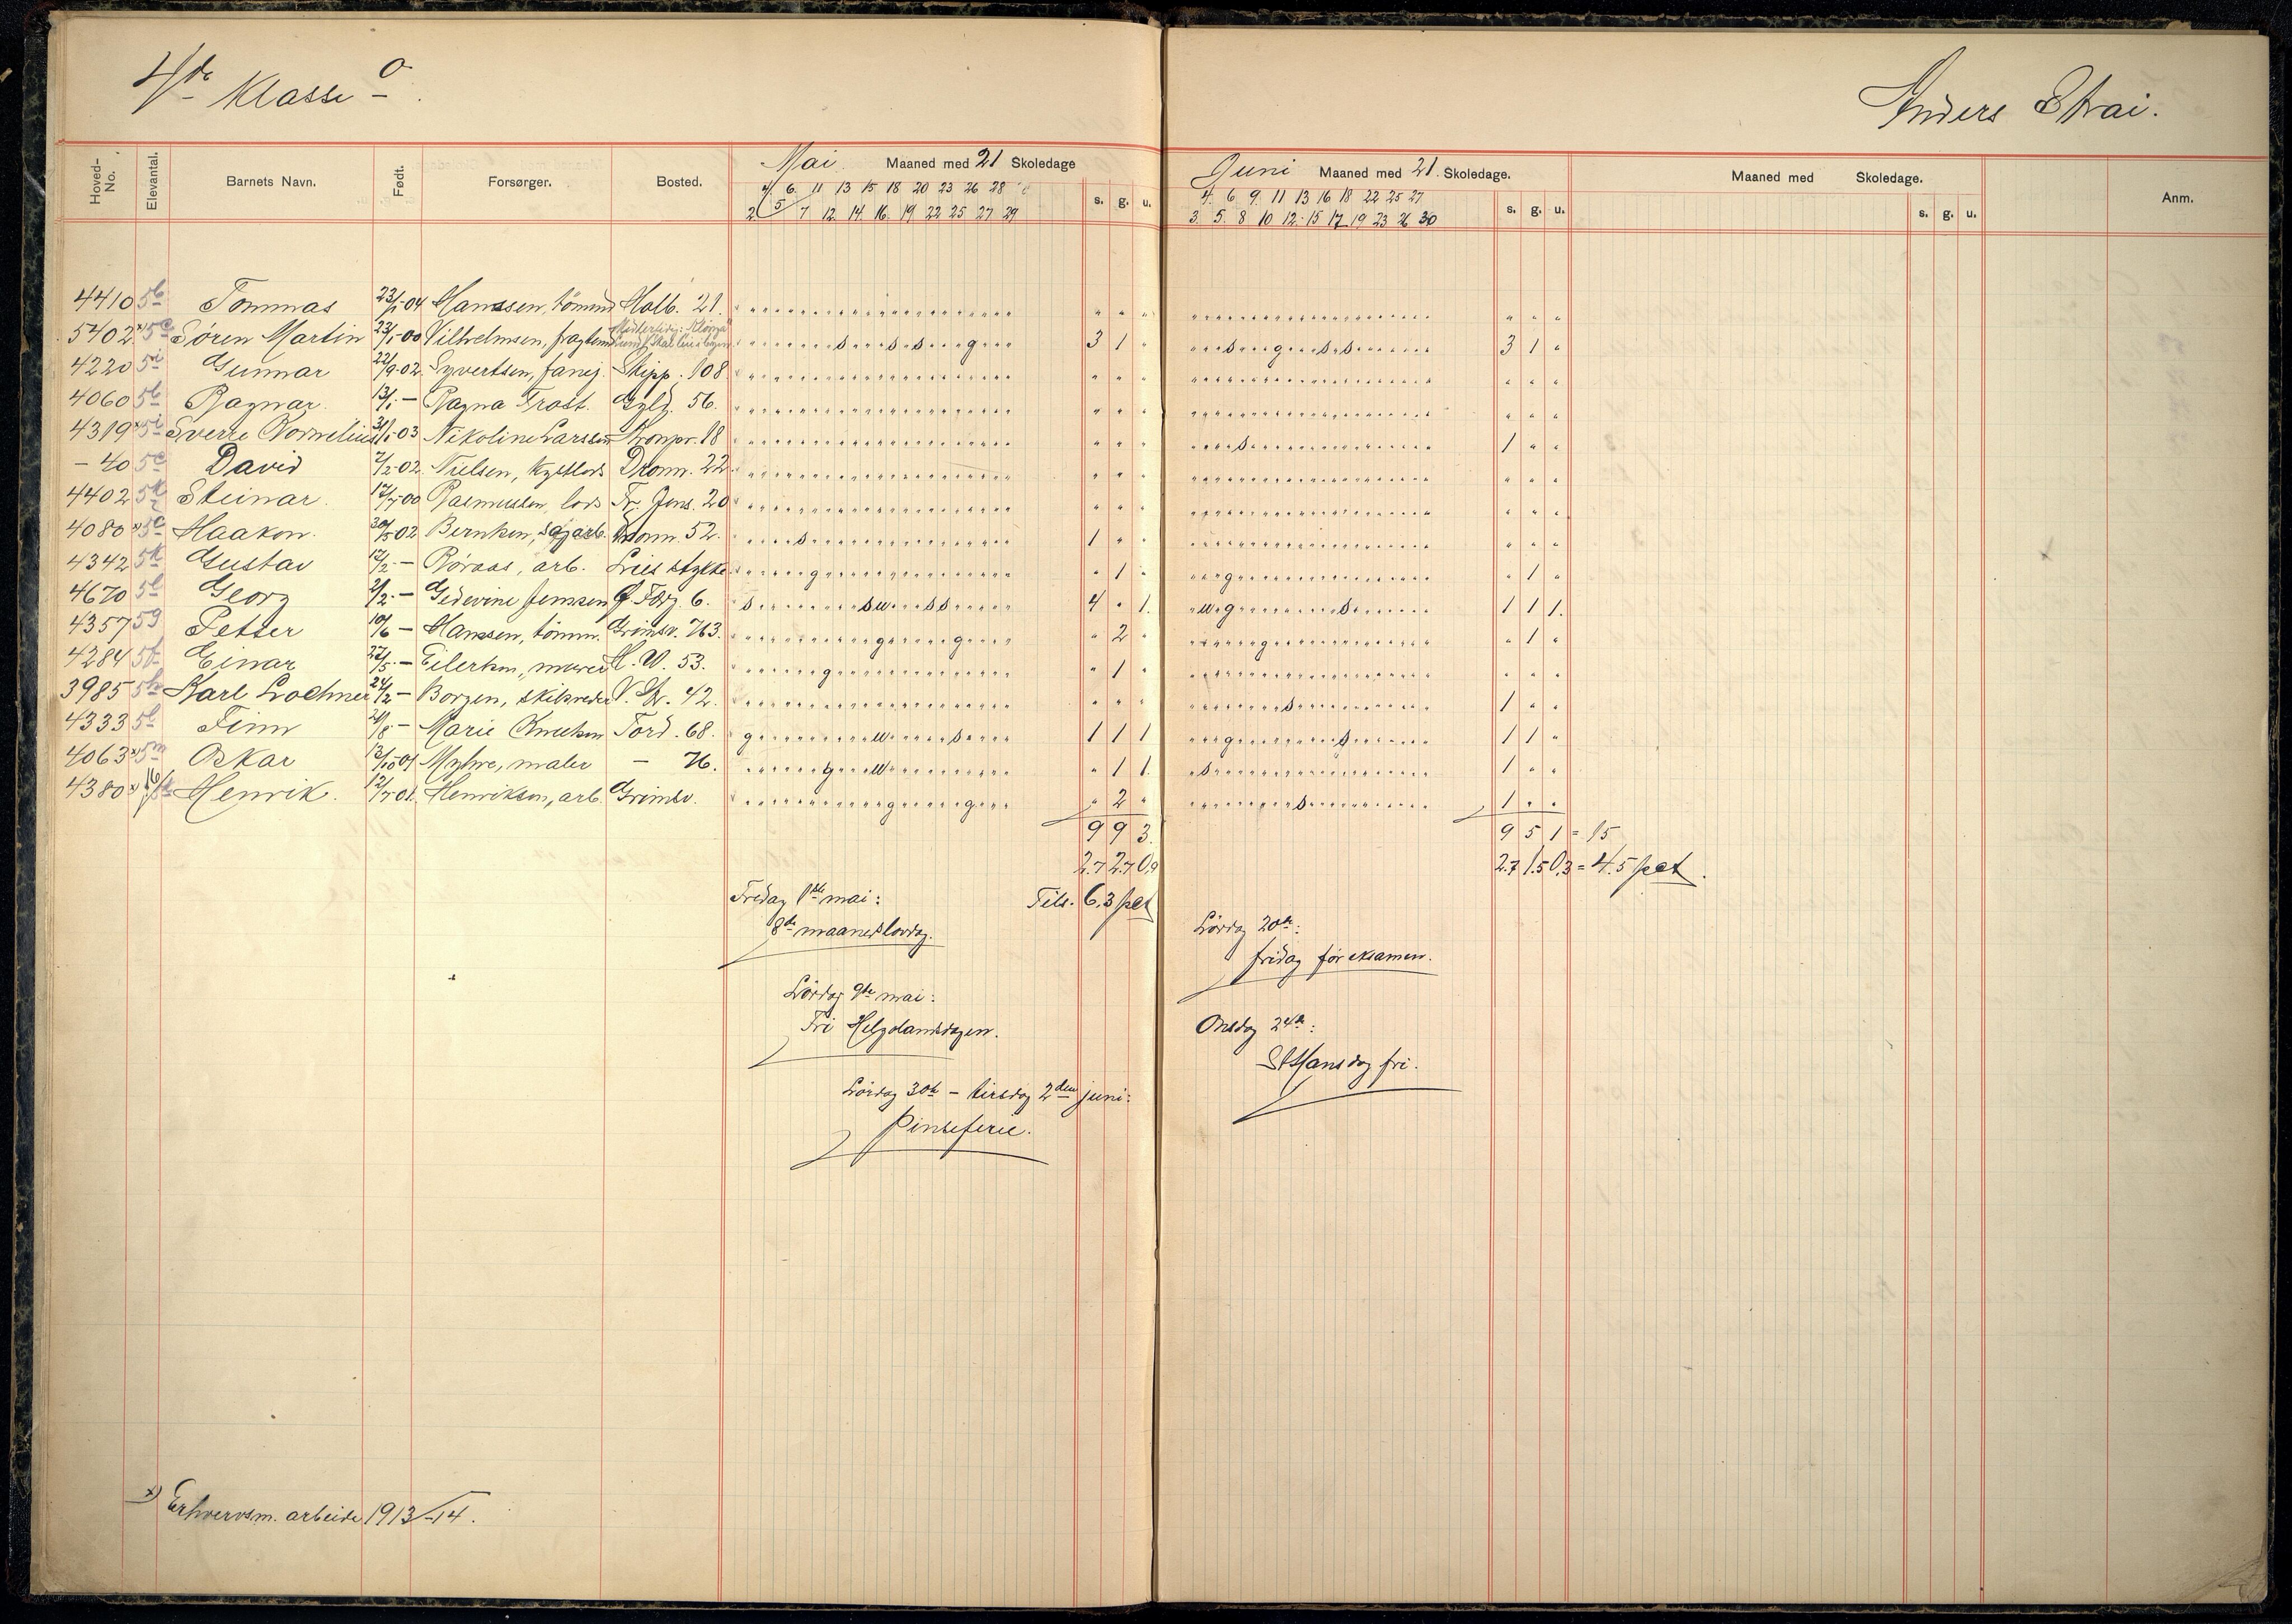 4de Klasse o.
Anders Strai.
Hoved-No. Elevantal. Barnets Navn. Født. Forsørger. Bosted. Mai Maaned med 21 Skoledage s. g. u. Juni Maaned med 21. Skoledage. s. g. u. Maaned med Skoledage. s. g. u. Anm.
4 6 11 13 15 18 20 23 26 28 4. 6 9. 11 13 16 18 22 25 27
2 5 7 12 14 16 19 22 25 27 29 3. 5. 8 10 12. 15 17 19 23 26 30
4410 5b Tommas 23/1-04 Hanssen, tömmd Holb. 21. " " " " " "
5402 x) 5c Søren Martin 23/1-00 Vilhelmsen, 3 1 " 3 1 "
4220 5i Gunnar 22/9-02. Syvertsen, Skipp. 108 " " " " " "
4060 5b Ragnar 13/1 - Ragna Frost. Gyld. 56. " " " " " "
4319 x) 5i Sverre Kornelius 31/1-03 Nikoline Larssen Kronpr. 18 " " " 1 " "
- 40 5c David 7/2-02. Nielsen, Dronn. 22. " " " " " "
4402 5k Steinar. 17/7-00 Rasmussen, lods Fr. Jens. 20 " " " " " "
4080 x) 5c Haakon. 30/5 02 Berntsen, sagarb. Dronn. 52. 1 " " " " "
4342 5k Gustav 12/2 - Röraas, arb. Lies stykke " 1 " " 1 "
4670 5l Georg 2/2 - Gedevine Jenssen 6. 4 " 1. 1 1 1.
4357 5g Petter 10/6 - Hanssen, tömm. Grimsv. 763. " 2 " " 1 "
4284 5b Einar 27/5 - Eilertsen, murer H. W. 53. " 1 " " " "
3985 5h Karl Lochner 24/2 - Borgen, skibsreder V. Str. 42. " " " 1 " "
4333 5l Finn 21/8 - Marie Knutsen Tord. 68. 1 1 1 1 1 "
4063 x) 5m Oskar 13/10-01 Myhre, maler - 76. " 1 1. 1 " "
4380 x) Henrik. 12/7-01. Henriksen, arb. Grimsv. " 2 " 1 " "
9 9 3. 9 5 1 = 15
2.7 2.7 0,9 2.7 1.5 0,3 = 4.5 pct.
Fredag 1ste mai: Tils. 6,3 pct
8de maanedslovdag.
Lördag 20de:
fridag för eksamen.
Lördag 9de mai:
Fri Helgolandsdagen.
Onsdag 24de:
St Hansdag fri.
Lördag 30te - tirsdag 2den juni:
Pinseferie.
x) Erhvervsm. arbeide 1913-14.